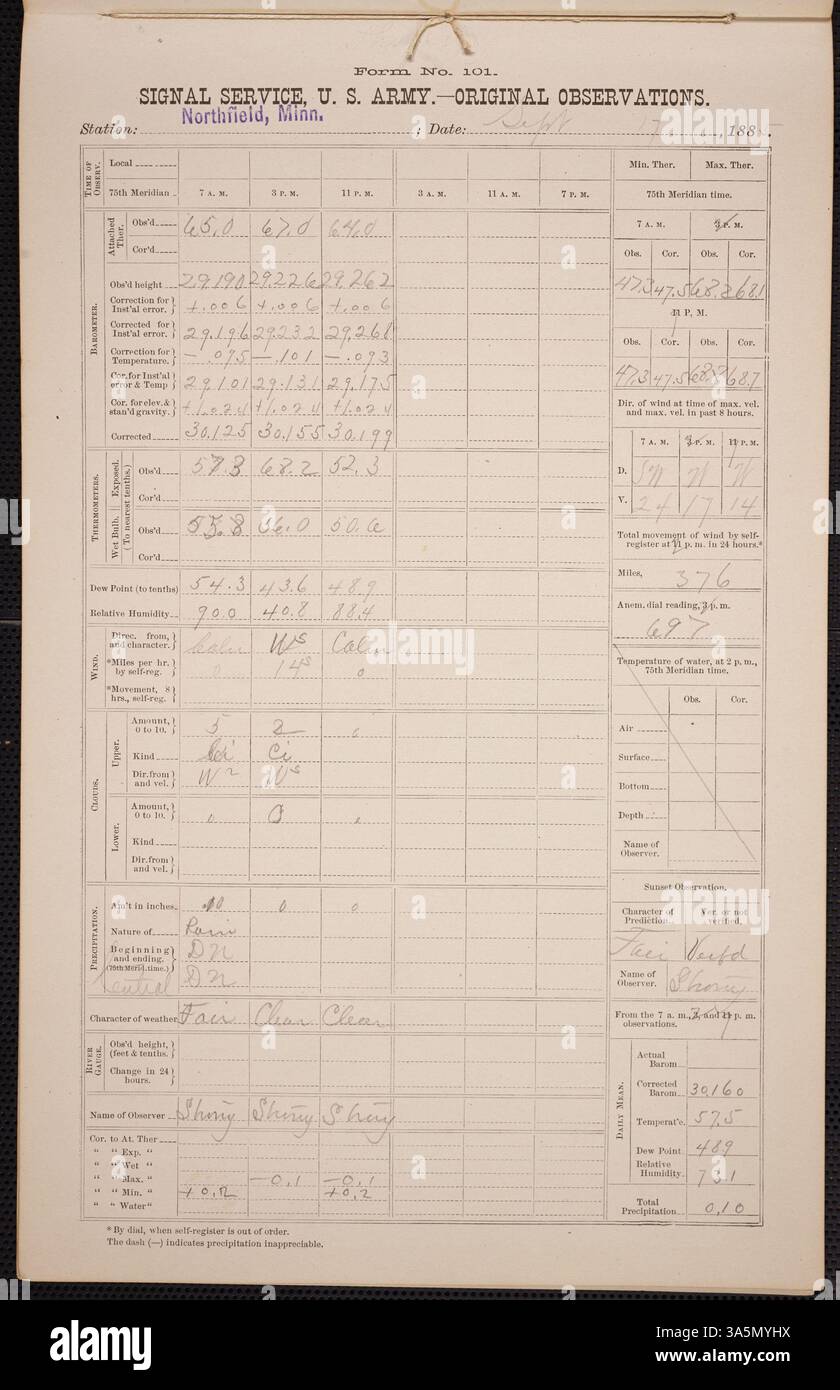 Form No. 101.
SIGNAL SERVICE, U. S. ARMY.—ORIGINAL OBSERVATIONS.
Station: Northfield, Minn. ; Date: Sept 17, 188 .
TIME OF OBSERV.
Local
75th Meridian 7 A. M. 3 P. M. 11 P. M. 3 A. M. 11 A. M. 7 P. M.
BAROMETER.
Attached Ther.
Obs'd 65.0 67.0 64.0
Cor'd
Obs'd height 29.190 29.226 29.262
Correction for Inst'al error. +.006 +.006 +.006
Corrected for Inst'al error. 29.196 29.232 29.268
Correction for Temperature. —.095 —.101 —.093
Cor. for Inst'al error & Temp 29.101 29.131 29.175
Cor. for elev. & stan'd gravity. +1.024 +1.024 +1.024
Corrected 30.125 30.155 30.199
THERMOMETERS.
Exposed. (To nearest tenths.)
Obs'd 57.3 68.2 52.3
Cor'd
Wet Bulb.
Obs'd 55.8 56.0 50.6
Cor'd
Dew Point (to tenths) 54.3 43.6 48.9
Relative Humidity 90.0 40.8 88.4
WIND.
Direc. from, and character. Calm Ws Calm
*Miles per hr. by self-reg. 0 14s 0
*Movement, 8 hrs., self-reg.
CLOUDS.
Upper.
Amount, 0 to 10. 5 2 0
Kind Ci Ci
Dir. from and vel. W2 Ws
Lower.
Amount, 0 to 10. 0 0 0
Kind
Dir. from and vel.
PRECIPITATION.
Am't in inches .10 0 0
Nature of Rain
Beginning and ending. (75th Merid. time.) DN
DN
Central
Character of weather Fair Clear Clear
RIVER GAUGE.
Obs'd height, (feet & tenths.
Change in 24 hours.
Name of Observer
Cor. to At. Ther
" " Exp. "
" " Wet "
" " Max. " —0.1 —0.1
" " Min. " +0.2 +0.2
" " Water"
* By dial, when self-register is out of order.
The dash (—) indicates precipitation inappreciable.
Min. Ther. Max. Ther.
75th Meridian time.
7 A. M. 3 P. M.
Obs. Cor. Obs. Cor.
47.3 47.5 68.2 68.1
11 P. M.
Obs. Cor. Obs. Cor.
47.3 47.5 68.8 68.7
Dir. of wind at time of max. vel. and max. vel. in past 8 hours.
7 A. M. 3 P. M. 11 P. M.
D. SW W W
V. 24 17 14
Total movement of wind by self-register at 11 p. m. in 24 hours.*
Miles, 376
Anem. dial reading, 3 p. m.
697
Temperature of water, at 2 p. m., 75th Meridian time.
Obs. Cor.
Air
Surface
Bottom
Depth
Name of Observer.
Sunset Observation.
Character of Prediction. Ver. or not verified.
Fair Verfd
Name of Observer.
From the 7 a. m., 3, and 11 p. m. observations.
DAILY MEAN.
Actual Barom
Corrected Barom 30.160
Temperat'e. 57.5
Dew Point 48.9
Relative Humidity 73.1
Total Precipitation 0.10
alamy
a
alamy
Image ID: 3A5MYHX
www.alamy.com